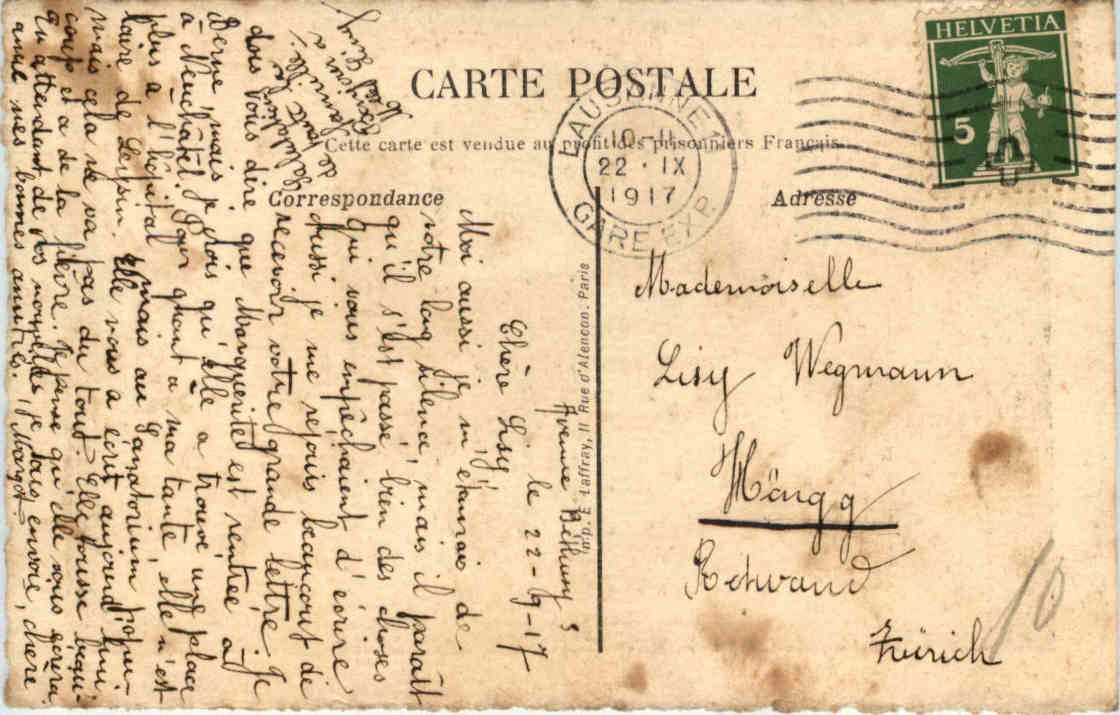 CARTE POSTALE
Cette carte est vendue au profit des prisonniers Français.
Correspondance
Adresse
HELVETIA
5
LAUSANNE 1
10-11
22 · IX
1917
GARE EXP.
Imp. E. Laffray, 11 Rue d'Alençon. Paris
Mademoiselle
Lisy Wegmann
Höngg
Zürich
10
Avenue Béthusy 5
le 22-9-17
Chère Lisy!
Moi aussi je m'étonnais de
votre long silence, mais il paraît
qu'il s'est passé bien des choses
qui vous empêchaient d'écrire
aussi je me réjouis beaucoup de
recevoir votre grande lettre. Je
dois vous dire que Marguerite est rentrée à
Berne, mais je crois qu'elle a trouvé une place
à Neuchâtel. Pour quant à ma tante, elle n'est
plus à l'hôpital mais au Sanatorium popu-
laire de Leysin. Elle vous a écrit aujourd'hui
mais cela ne va pas du tout. Elle tousse beau-
coup et a de la fièvre. Je pense qu'elle vous écrira.
En attendant de vos nouvelles je vais envoie, chère
amie mes bonnes amitiés, Margot
de toute la
famille.